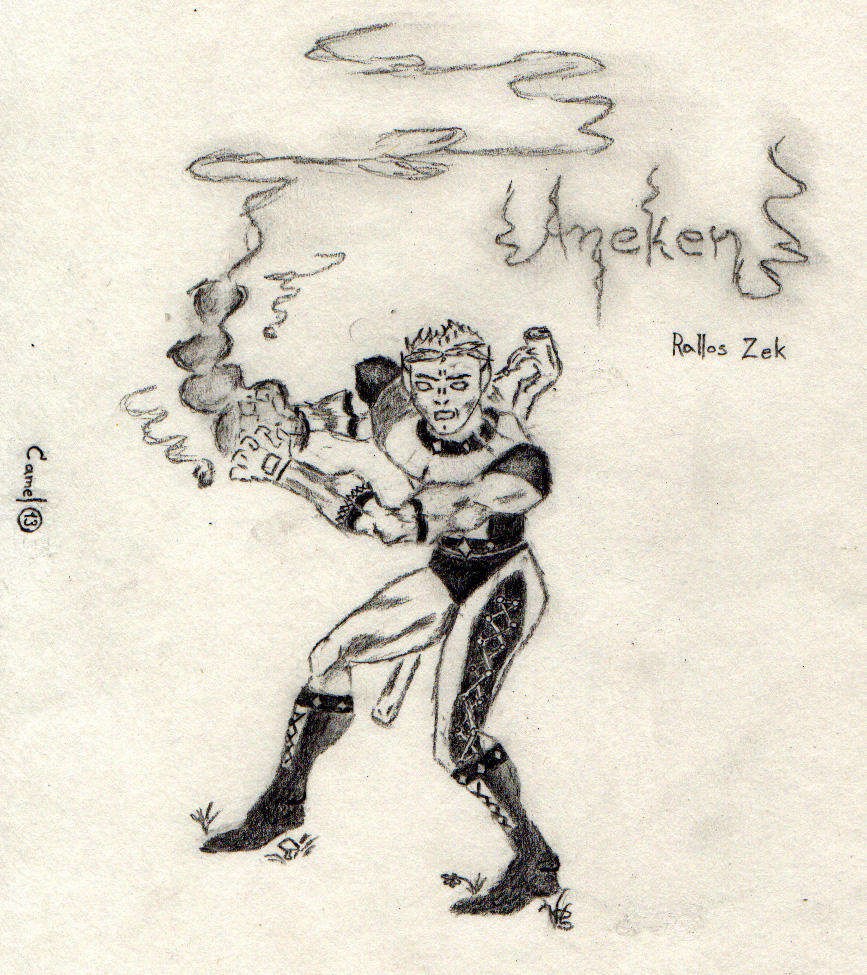 Aneken
Rallos Zek
Camel 13